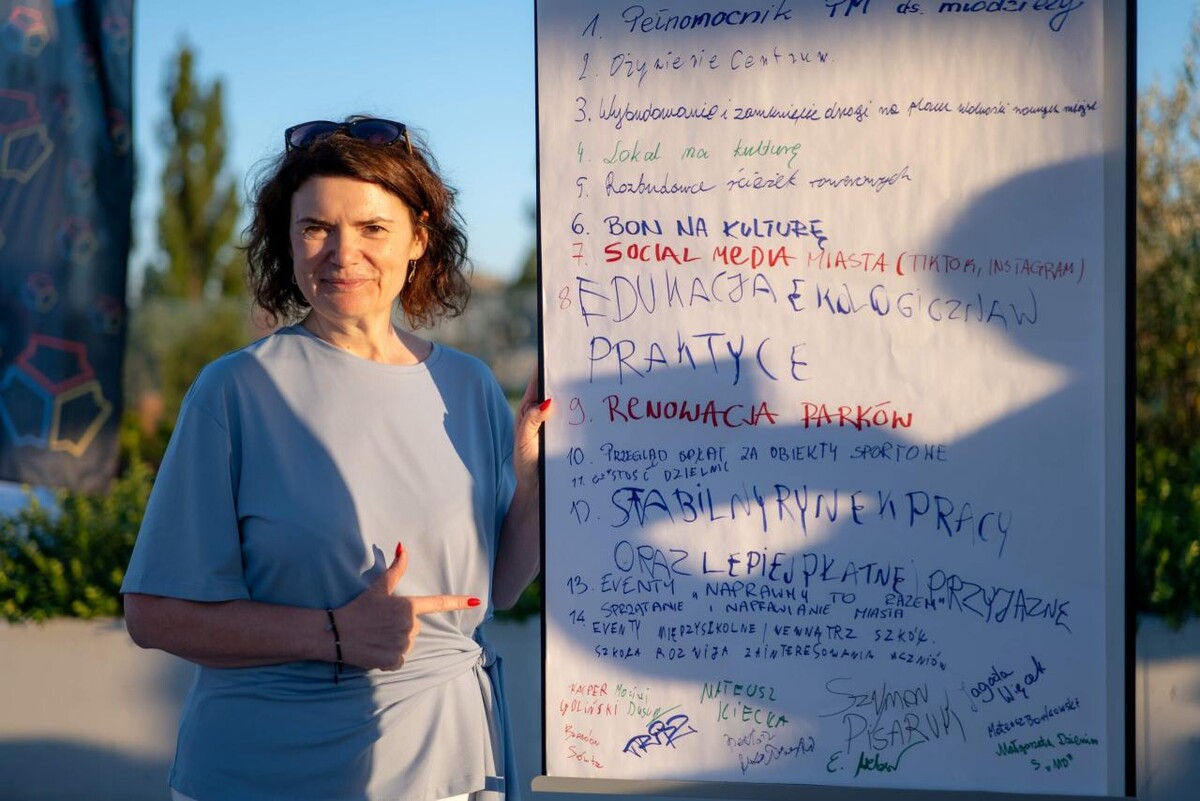 1. Pełnomocnik PM ds. młodzieży
2. Ożywienie Centrum.
3. Wybudowanie i zamknięcie drogi na placu wolności nowych miejsc
4. Lokal na kulturę
5. Rozbudowa ścieżek rowerowych
6. BON NA KULTURĘ
7. SOCIAL MEDIA MIASTA (TIKTOK, INSTAGRAM)
8 EDUKACJA EKOLOGICZNA W
PRAKTYCE
9. RENOWACJA PARKÓW
10. PRZEGLĄD OPŁAT ZA OBIEKTY SPORTOWE
11. CZYSTOŚĆ DZIELNIC
12. STABILNY RYNEK PRACY
ORAZ LEPIEJ PŁATNE, PRZYJAZNE
13. EVENTY „NAPRAWMY TO RAZEM"
SPRZĄTANIE I NAPRAWIANIE MIASTA
14. EVENTY MIĘDZYSZKOLNE / WEWNĄTRZ SZKÓŁ.
SZKOŁA ROZWIJA ZAINTERESOWANIA UCZNIÓW
KACPER GOLIŃSKI
Maciej
MATEUSZ KIECKA
SZYMON PISARUK
Jagoda Więcek
Mateusz Bańkowski
Małgorzata